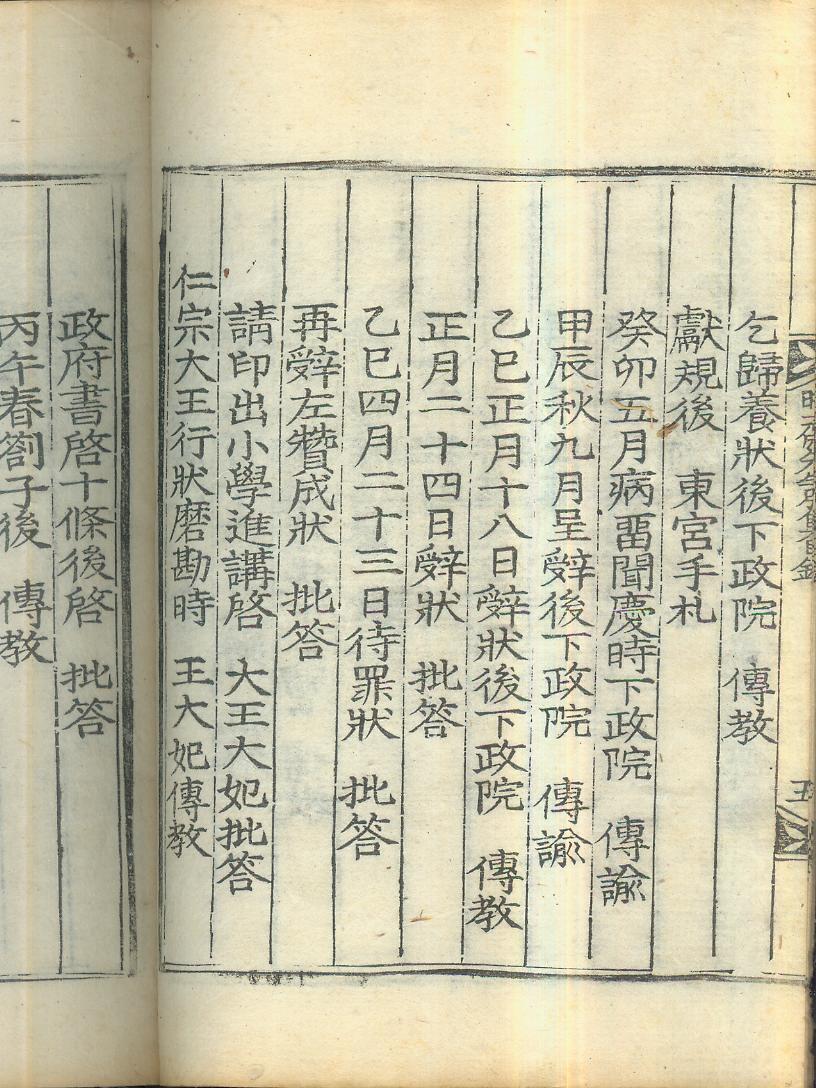 五
乞歸養狀後下政院　傳教
獻規後　東宮手札
癸卯五月病畱聞慶時下政院　傳諭
甲辰秋九月呈辭後下政院　傳諭
乙巳正月十八日辭狀後下政院　傳教
正月二十四日辭狀　批答
乙巳四月二十三日待罪狀　批答
再辭左贊成狀　批答
請印出小學進講啓　大王大妃批答
仁宗大王行狀磨勘時　王大妃傳教
政府書啓十條後啓　批答
丙午春劄子後　傳教